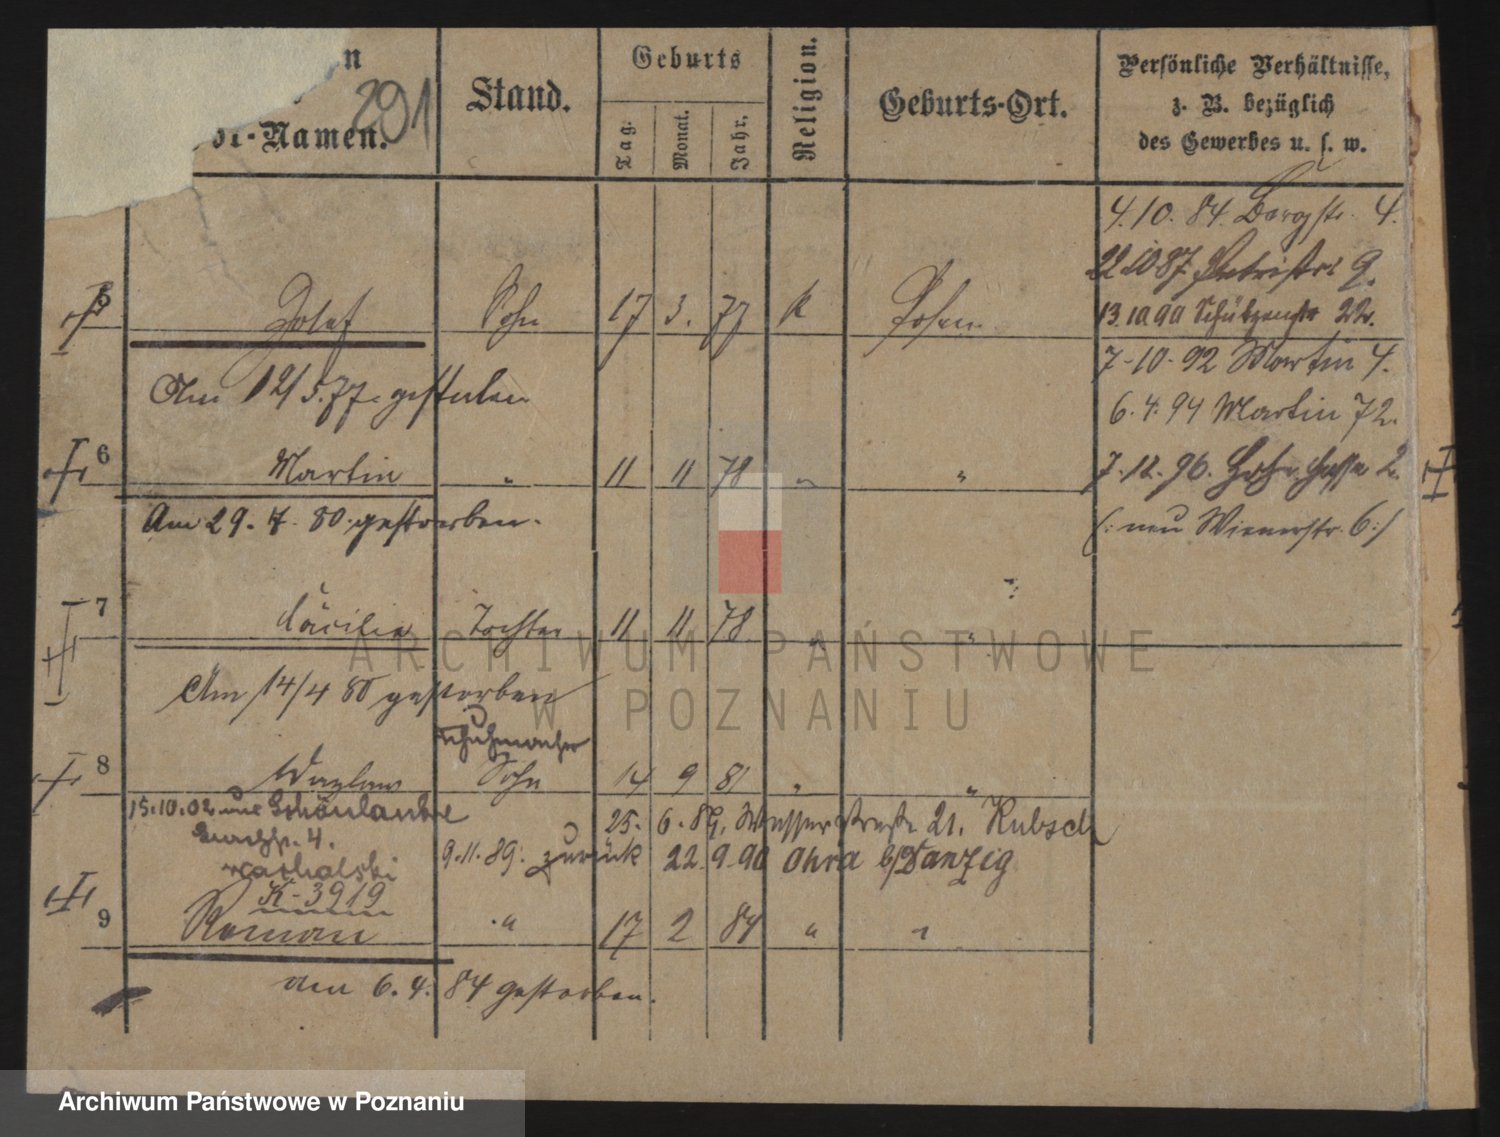 n
or-Namen.
291
Stand.
Geburts
Tag.
Monat.
Jahr.
Religion.
Geburts-Ort.
Persönliche Verhältnisse,
z. B. bezüglich
des Gewerbes u. s. w.
4.10.84. Bergstr. 4.
22.10.87. Petristr. 9.
13.10.90 Schützenstr 22.
7-10-92 Martin 4.
6.4.94 Martin 72.
7.12.96. Hohe Gasse 2.
(: neu Wienerstr. 6 :)
5 Josef Sohn 17 3. 77 k Posen
Am 12/5.77. gestorben
6 Martin " 11 11 78 " "
Am 29. 7. 80. gestorben.
7 Cäcilie Tochter 11 11 78 " "
Am 14/4 80 gestorben
Schuhmacher
8 Wazlaw Sohn 14 9 81 " "
15.10.02 Schönlanke
4.
25. 6. 89. Wasserstraße 21. Kubsch
9.11.89. zurück 22.9.90 Ohra b/Danzig
K-3919
9 Roman " 17 2 84 " "
am 6.4.84 gestorben.
ARCHIWUM PAŃSTWOWE
W POZNANIU
Archiwum Państwowe w Poznaniu